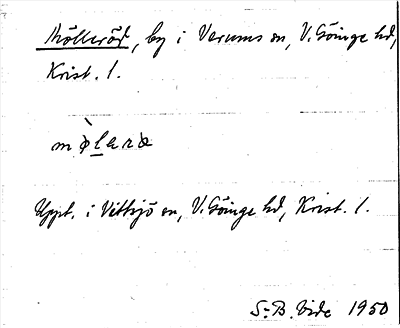 Mölleröd, by i Verums sn, V. Göinge hd,
Krist. l.
mø̀larə
Uppt. i Vittsjö sn, V. Göinge hd, Krist. l.
S-B. Vide 1950